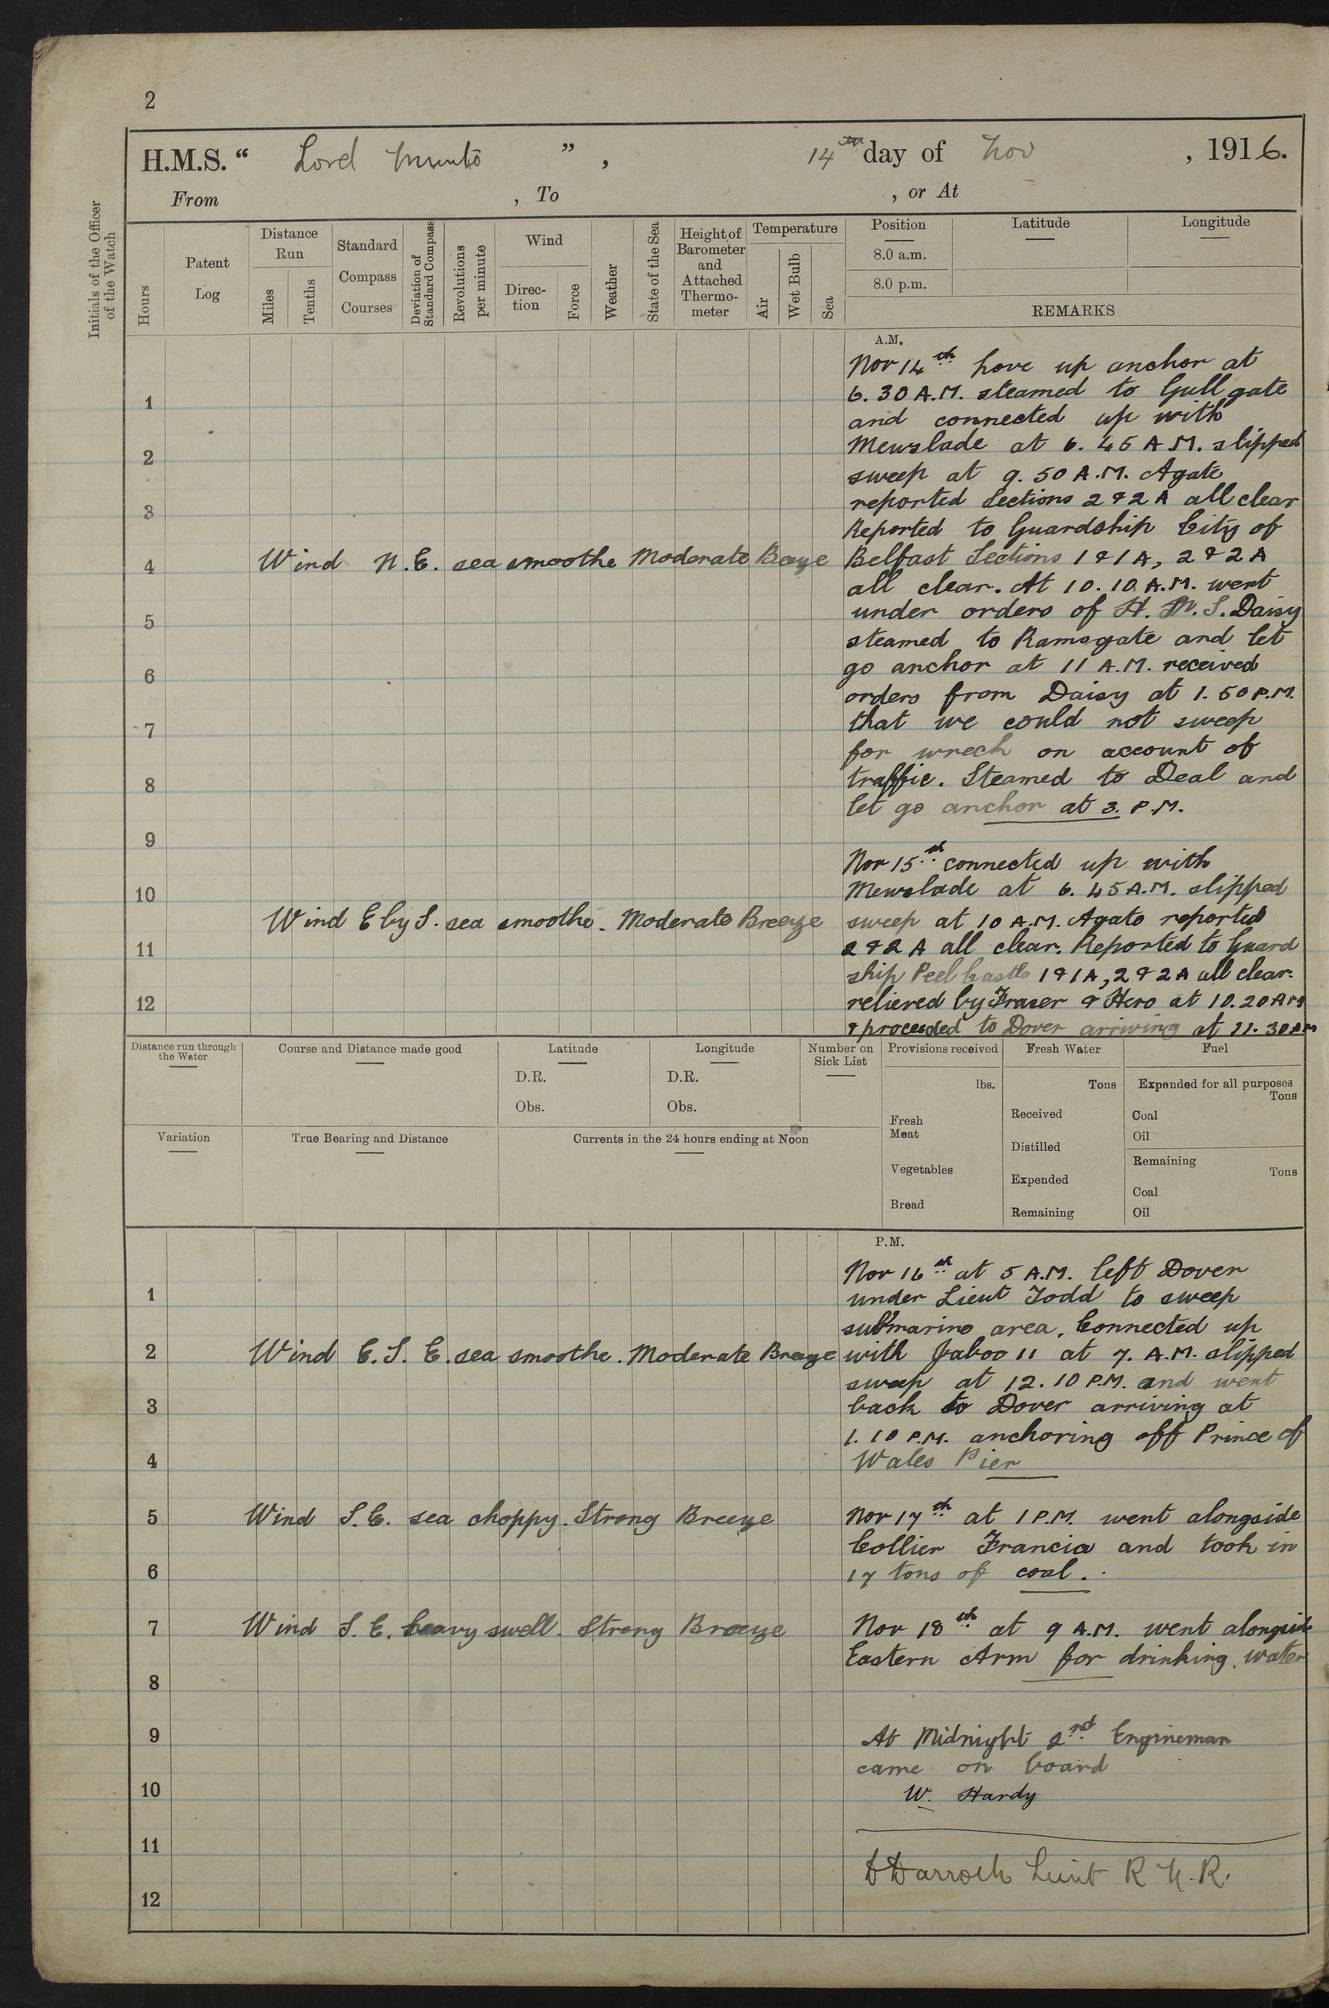 2
H.M.S. “ Lord Minto ” , 14th day of Nov , 1916.
From , To , or At
Initials of the Officer of the Watch
Hours
Patent Log
Distance Run
Miles
Tenths
Standard Compass Courses
Deviation of Standard Compass
Revolutions per minute
Wind
Direc-tion
Force
Weather
State of the Sea
Height of Barometer and Attached Thermo-meter
Temperature
Air
Wet Bulb
Sea
Position
8.0 a.m.
8.0 p.m.
Latitude
Longitude
REMARKS
A.M.
Nov 14th hove up anchor at
6.30 A.M. steamed to Gull gate
and connected up with
Mewslade at 6.45 A.M. slipped
sweep at 9.50 A.M. Agate
reported Sections 2 & 2 A all clear
Reported to Guardship City of
Wind N.E. sea smoothe Moderate Breeze
Belfast Sections 1 & 1 A, 2 & 2 A
all clear. At 10.10 A.M. went
under orders of H.M.S. Daisy
steamed to Ramsgate and let
go anchor at 11 A.M. received
orders from Daisy at 1.50 P.M.
that we could not sweep
for wreck on account of
traffic. Steamed to Deal and
let go anchor at 3. P.M.
Nov 15th connected up with
Mewslade at 6.45 A.M. slipped
Wind E by S. sea smoothe. Moderate Breeze
sweep at 10 A.M. Agate reported
2 & 2 A all clear. Reported to Guard
ship Peel Castle 1 & 1 A, 2 & 2 A all clear.
relieved by Fraser & Hero at 10.20 AM
& proceeded to Dover arriving at 11.30 AM
1
2
3
4
5
6
7
8
9
10
11
12
Distance run through the Water
Course and Distance made good
Latitude
D.R.
Obs.
Longitude
D.R.
Obs.
Number on Sick List
Provisions received
lbs.
Fresh Meat
Vegetables
Bread
Fresh Water
Tons
Received
Distilled
Expended
Remaining
Fuel
Expended for all purposes
Tons
Coal
Oil
Remaining
Tons
Coal
Oil
Variation
True Bearing and Distance
Currents in the 24 hours ending at Noon
P.M.
Nov 16th at 5 A.M. left Dover
under Lieut Todd to sweep
submarine area. Connected up
Wind E.S.E. sea smoothe. Moderate Breeze
with Jaboo 11 at 7. A.M. slipped
sweep at 12.10 P.M. and went
back to Dover arriving at
1.10 P.M. anchoring off Prince of
Wales Pier
Wind S.E. sea choppy. Strong Breeze
Nov 17th at 1 P.M. went alongside
Collier Francia and took in
17 tons of coal.
Wind S.E. heavy swell. Strong Breeze
Nov 18th at 9 A.M. went alongside
Eastern Arm for drinking water
At Midnight 2nd Engineman
came on board
W. Hardy
D Darroch Lieut R.N.R.
1
2
3
4
5
6
7
8
9
10
11
12